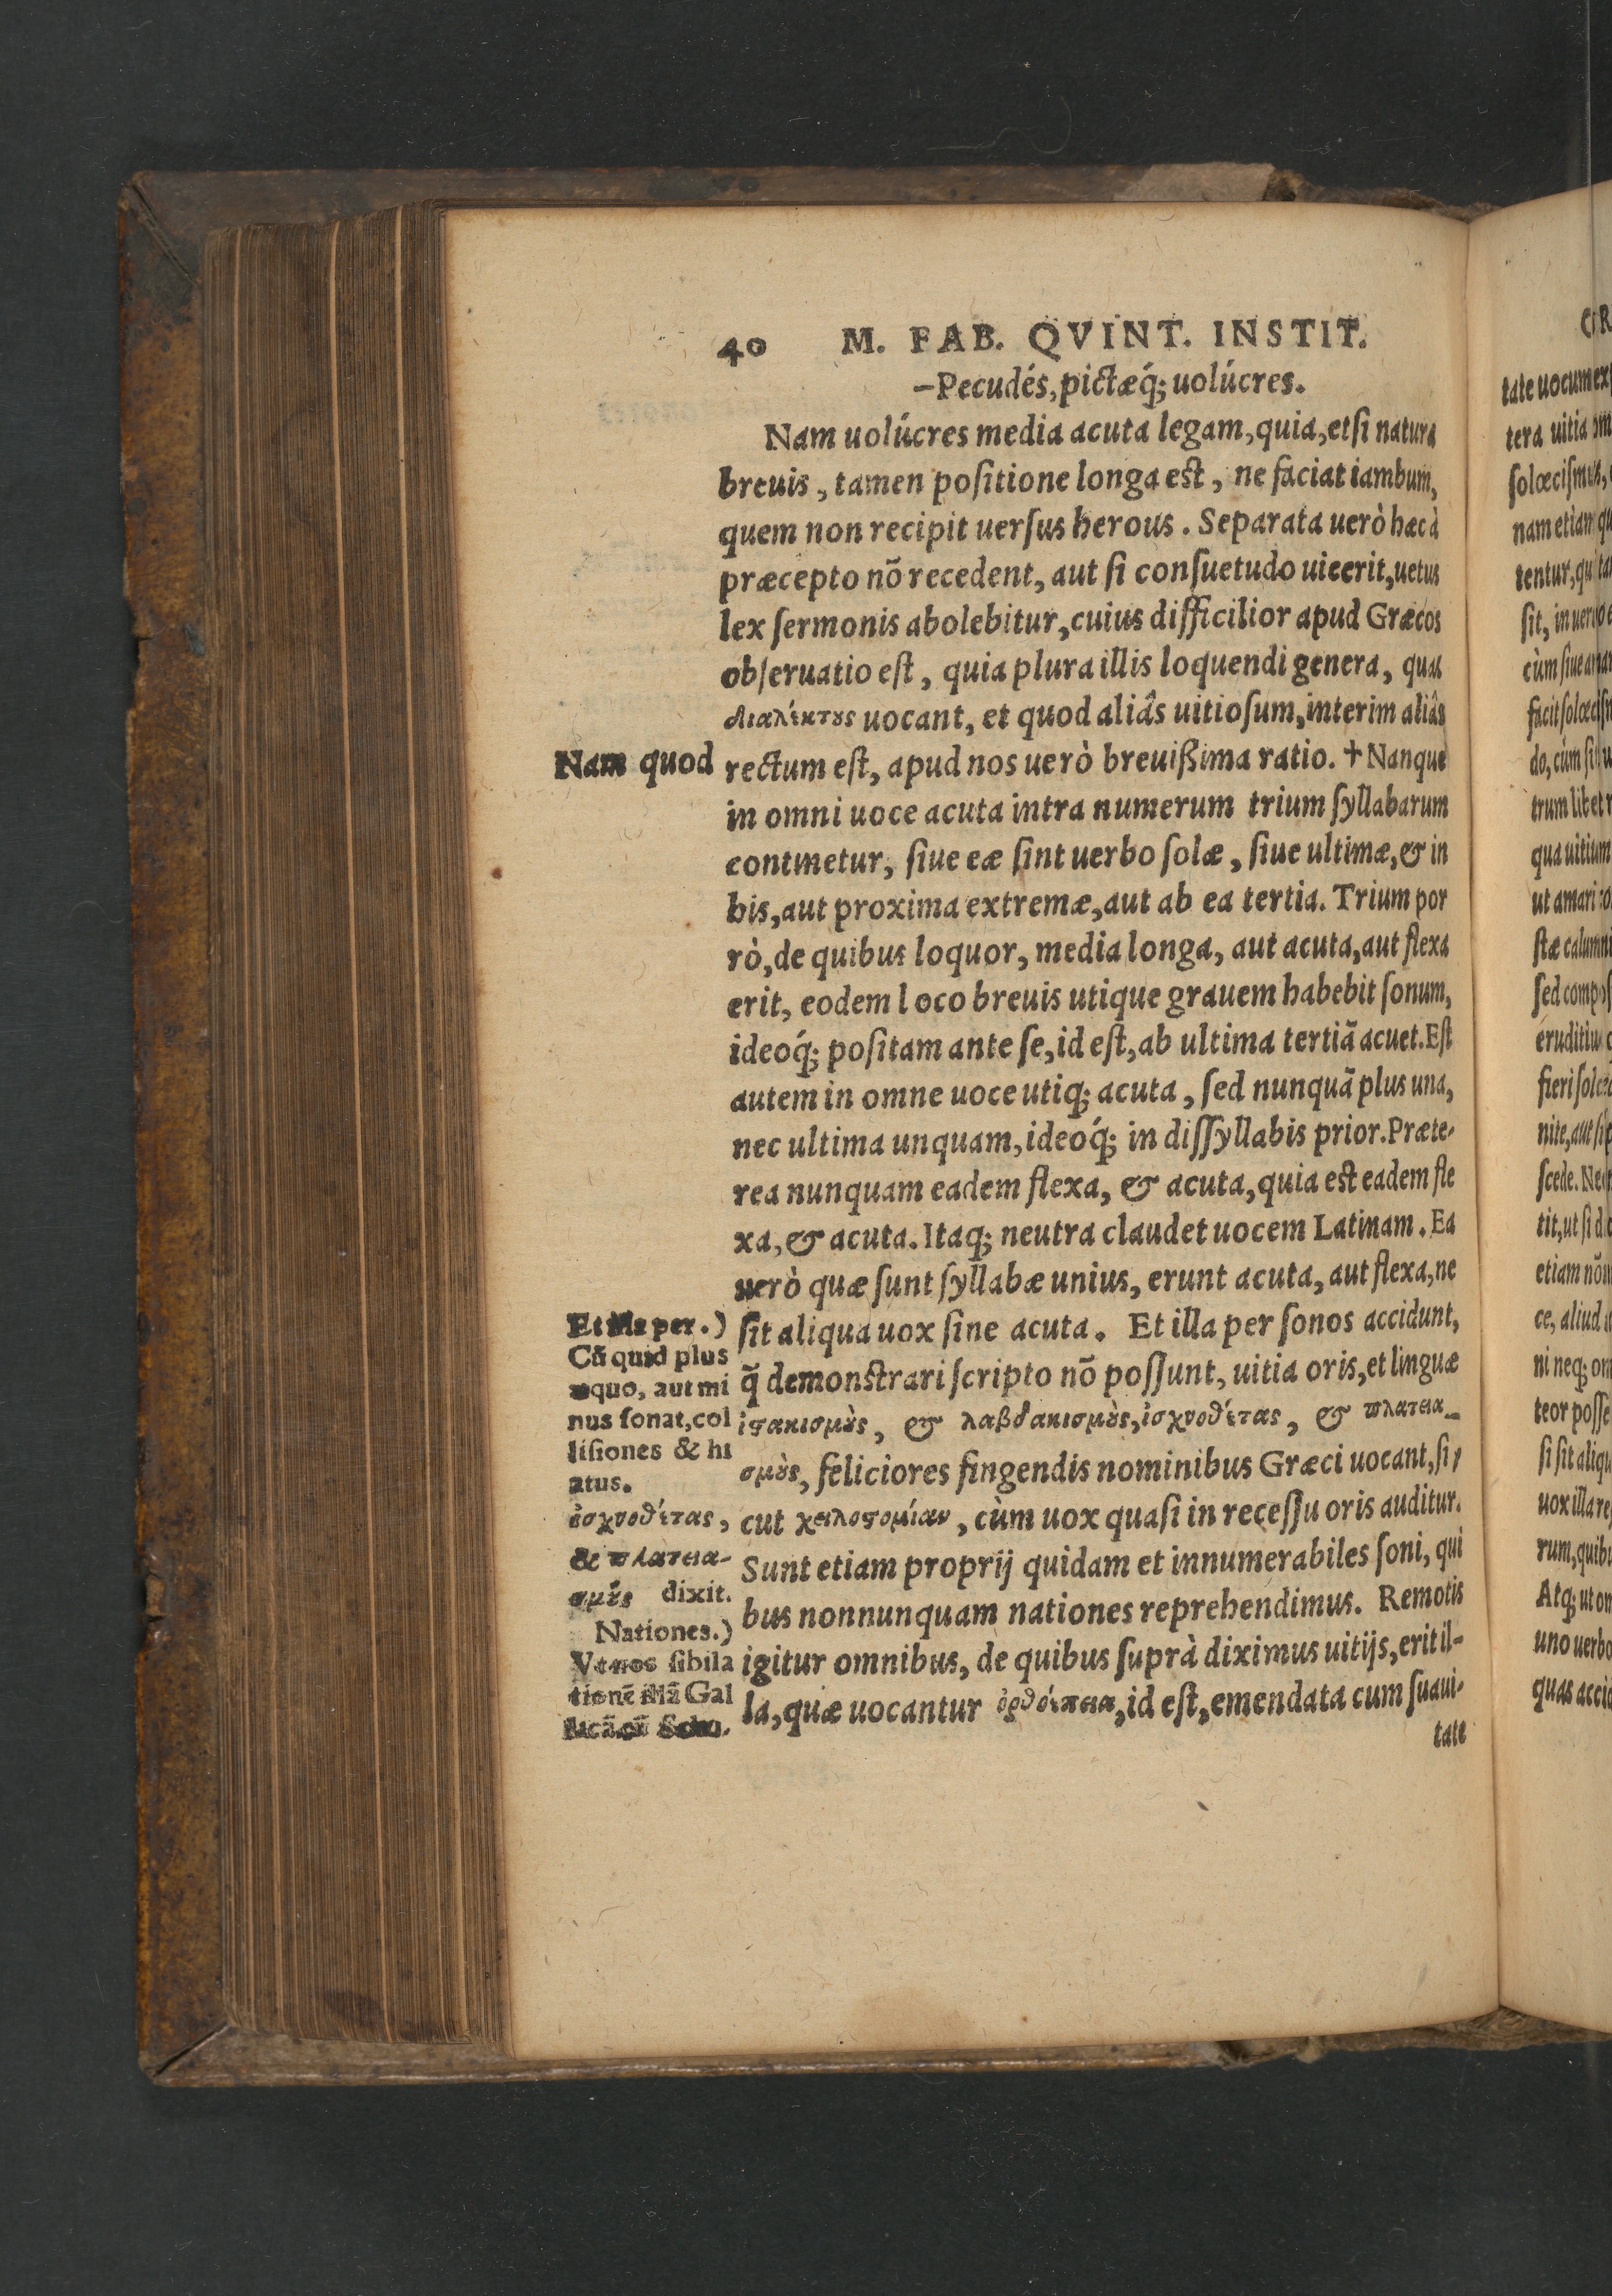 40 M. FAB. QVINT. INSTIT.
—Pecudés, pictæq́; uolúcres.
Nam uolúcres media acuta legam, quia, etſi natura
breuis, tamen poſitione longa eſt, ne faciat iambum,
quem non recipit uerſus herous. Separata uerò hæc à
præcepto nõ recedent, aut ſi conſuetudo uicerit, uetus
lex ſermonis abolebitur, cuius difficilior apud Græcos
obſeruatio eſt, quia plura illis loquendi genera, quas
διαλέκτους uocant, et quod aliâs uitioſum, interim aliâs
Nam quod
rectum eſt, apud nos uerò breuißima ratio. † Nanque
in omni uoce acuta intra numerum trium ſyllabarum
continetur, ſiue eæ ſint uerbo ſolæ, ſiue ultimæ, & in
bis, aut proxima extremæ, aut ab ea tertia. Trium por
rò, de quibus loquor, media longa, aut acuta, aut flexa
erit, eodem loco breuis utique grauem habebit ſonum,
ideoq́; poſitam ante ſe, id eſt, ab ultima tertiã acuet. Eſt
autem in omne uoce utiq; acuta, ſed nunquã plus una,
nec ultima unquam, ideoq́; in diſſyllabis prior. Præte-
rea nunquam eadem flexa, & acuta, quia eſt eadem fle
xa, & acuta. Itaq; neutra claudet uocem Latinam. Ea
uerò quæ ſunt ſyllabæ unius, erunt acuta, aut flexa, ne
ſit aliqua uox ſine acuta. Et illa per ſonos accidunt,
q̃ demonſtrari ſcripto nõ poſſunt, uitia oris, et linguæ
ἰωτακισμοὺς, & λαβδακισμοὺς, ἰσχνοθέτας, & πλατεια-
σμοὺς, feliciores fingendis nominibus Græci uocant, ſi-
cut χειλοστομίαν, cùm uox quaſi in receſſu oris auditur.
Sunt etiam proprij quidam et innumerabiles ſoni, qui
bus nonnunquam nationes reprehendimus. Remotis
igitur omnibus, de quibus ſuprà diximus uitijs, erit il-
la, quæ uocantur ὀρθοέπεια, id eſt, emendata cum ſuaui-
tate
Et illa per.)
Cũ quid plus
æquo, aut mi
nus ſonat, col
liſiones & hi
atus.
ἰσχνοθέτας,
& πλατεια-
σμοὺς dixit.
Nationes.)
Vt nos ſibila
tionẽ illã Gal
CIR
tate uocum ex
tera uitia
ſolœciſmus,
nam etiam
tentur,
ſit, in uer
cùm ſiue
facit ſolœciſ
do, cùm
trum libet
qua uitium
ut amari
ſtæ calumni
ſed compoſ
eruditiu
fieri ſolœ
nite, aut
ſcede. Ne
tit, ut ſi
etiam
ce, aliud
ni neq;
teor poſſe
ſi ſit aliqu
uox illa
rum, quibu
Atq; ut
uno uerbo
quas accid